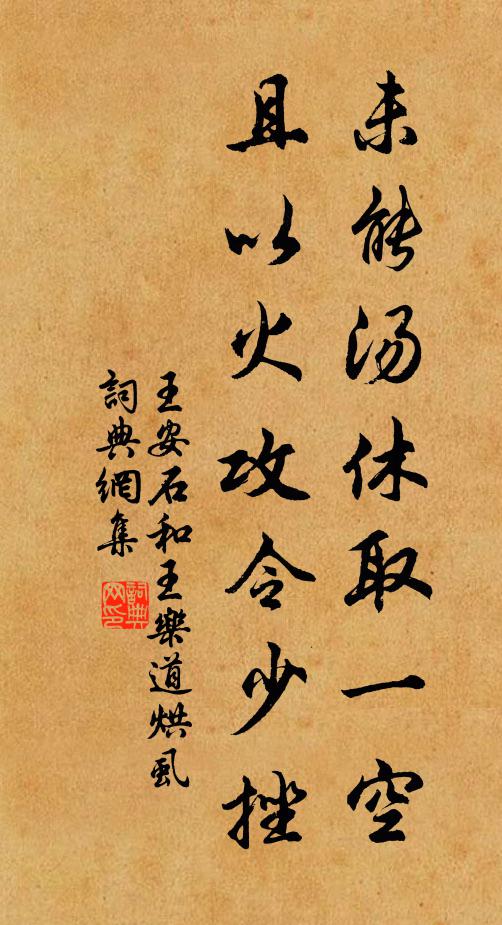 未能汤休取一空
且以火攻令少挫
王安石和王樂道烘虱
詞典網集
詞典网印